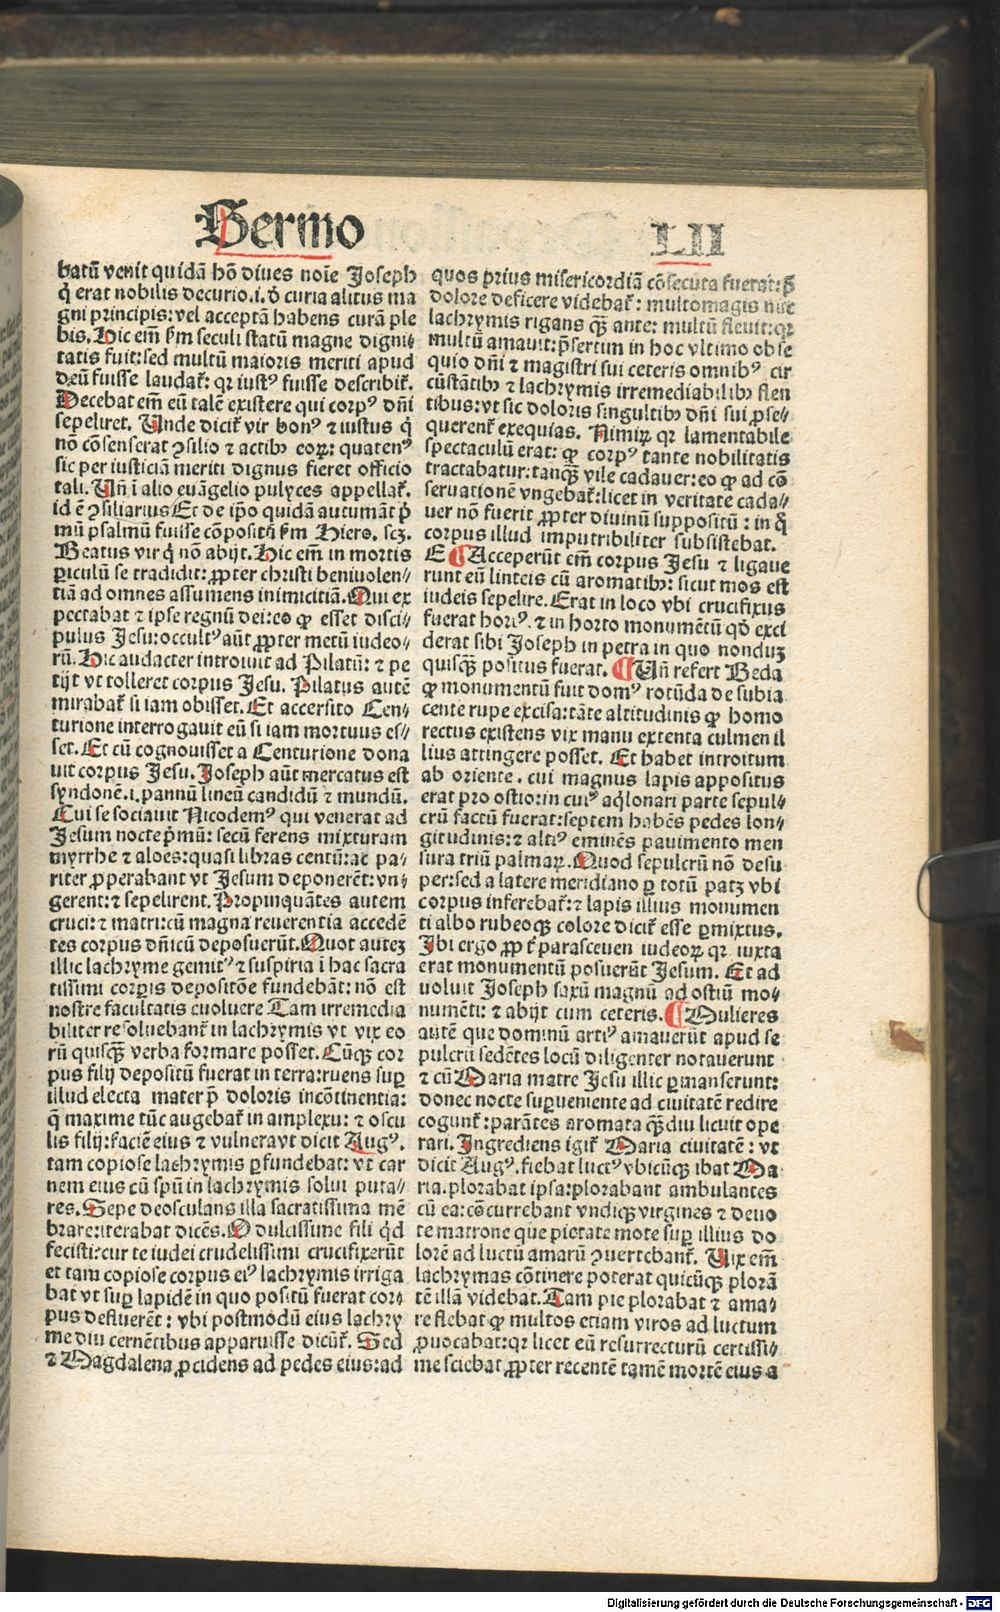 Sermo LII
batū venit quidā hō diues noīe Joseph
q̇ erat nobilis decurio.i.ḋ curia alitus ma
gni principis: vel acceptā habens curā ple
bis. Hic em̄ ẜm seculi statū magne digni⸗
tatis fuit: sed multū maioris meriti apud
deū fuisse laudat̄: qꝛ iustꝰ fuisse describit̄.
Decebat em̄ eū talē existere qui corpꝰ dn̄i
sepeliret. Unde dicit̄ vir bonꝰ ⁊ iustus q̇
nō cōsenserat ꝯsilio ⁊ actibꝰ eoꝝ: quatenꝰ
sic per iusticiā meriti dignus fieret officio
tali. Un̄ ī alio euāgelio pulyces appellat̄.
id ē ꝯsiliarius Et de ip̄o quidā autumāt p̄
mū psalmū fuisse cōpositū ẜm Hiero. scꝫ.
Beatus vir q̇ nō abijt. Hic em̄ in mortis
ꝑiculū se tradidit: ꝓpter christi beniuolen⸗
tiā ad omnes assumens inimicitiā. Qui ex
pectabat ⁊ ipse regnū dei: eo ꝙ esset disci⸗
pulus Jesu: occultꝰ aūt ꝓpter metū iudeo⸗
rū. Hic audacter introiuit ad Pilatū: ⁊ pe
tijt vt tolleret corpus Jesu. Pilatus autē
mirabat̄ si iam obisset. Et accersito Cen⸗
turione interrogauit eū si iam mortuus es⸗
set. Et cū cognouisset a Centurione dona
uit corpus Jesu. Joseph aūt mercatus est
syndonē.i. pannū lineū candidū ⁊ mundū.
Cui se sociauit Nicodemꝰ qui venerat ad
Jesum nocte p̄mū: secū ferens mixturam
myrrhe ⁊ aloes: quasi libras centū: ac pa⸗
riter ꝓperabant vt Jesum deponerēt: vn⸗
gerent: ⁊ sepelirent. Propinquātes autem
cruci: ⁊ matri: cū magna reuerentia accedē
tes corpus dn̄icū deposuerūt. Quot auteꝫ
illic lachryme gemitꝰ ⁊ suspiria ī hac sacra
tissimi corꝑis depositiōe fundebāt: nō est
nostre facultatis euoluere Tam irremedia
biliter resoluebant̄ in lachrymis vt vix eo
rū quisqꝫ verba formare posset. Cūqꝫ cor
pus filij depositū fuerat in terra: ruens suꝑ
illud electa mater p̄ doloris incōtinentia:
q̄ maxime tūc augebat̄ in amplexu: ⁊ oscu
lis filij: faciē eius ⁊ vulnera vt dicit Augꝰ.
tam copiose lachrymis ꝑfundebat: vt car
nem eius cū spū in lachrymis solui puta⸗
res. Sepe deosculans illa sacratissima mē
bra reiterabat dicēs. O dulcissime fili qd̄
fecisti: cur te iudei crudelissimi crucifixerūt
et tam copiose corpus eiꝰ lachrymis irriga
bat vt suꝑ lapidē in quo positū fuerat cor⸗
pus defluerēt: vbi postmodū eius lachry
me diu cernētibus apparuisse dicūt̄. Sed
⁊ Magdalena ꝓcidens ad pedes eius: ad
quos prius misericordiā cōsecuta fuerat: p̄
dolore deficere videbat̄: multomagis nūc
lachrymis rigans qꝫ ante: multū fleuit: qꝛ
multū amauit: p̄sertim in hoc vltimo obse
quio dn̄i ⁊ magistri sui ceteris omnibꝰ cir
cūstātibꝰ ⁊ lachrymis irremediabilibꝰ flen
tibus: vt sic doloris singultibꝰ dn̄i sui ꝓse⸗
querent̄ exequias. Nimiꝝ qꝛ lamentabile
spectaculū erat: ꝙ corpꝰ tante nobilitatis
tractabatur: tanqꝫ vile cadauer: eo ꝙ ad cō
seruationē vngebat̄: licet in veritate cada⸗
uer nō fuerit ꝓpter diuinū suppositū: in q̇
corpus illud imputribiliter subsistebat.
E ¶ Acceperūt em̄ corpus Jesu ⁊ ligaue
runt eū linteis cū aromatibꝰ: sicut mos est
iudeis sepelire. Erat in loco vbi crucifixus
fuerat hortꝰ. ⁊ in horto monumētū qd̄ exci
derat sibi Joseph in petra in quo nonduꝫ
quisqꝫ positus fuerat. ¶ Un̄ refert Beda
ꝙ monumentū fuit domꝰ rotūda de subia
cente rupe excisa: tāte altitudinis ꝙ homo
rectus existens vix manu extenta culmen il
lius attingere posset. Et habet introitum
ab oriente. cui magnus lapis appositus
erat pro ostio: in cuiꝰ aq̇lonari parte sepul⸗
crū factū fuerat: septem habēs pedes lon⸗
gitudinis: ⁊ altiꝰ eminēs pauimento men
sura triū palmaꝝ. Quod sepulcrū nō desu
per: sed a latere meridiano ꝑ totū patꝫ vbi
corpus inferebat̄: ⁊ lapis illius monumen
ti albo rubeoqꝫ colore dicit̄ esse ꝑmixtus.
Ibi ergo ꝓpt̄ parasceuen iudeoꝝ qꝛ iuxta
erat monumentū posuerūt Jesum. Et ad
uoluit Joseph saxū magnū ad ostiū mo⸗
numēti: ⁊ abijt cum ceteris. ¶ Mulieres
autē que dominū artiꝰ amauerūt apud se
pulcrū sedētes locū diligenter notauerunt
⁊ cū Maria matre Jesu illic ꝑmanserunt:
donec nocte suꝑueniente ad ciuitatē redire
cogunt̄: parātes aromata qꝫdiu licuit ope
rari. Ingrediens igit̄ Maria ciuitatē: vt
dicit Augꝰ. fiebat luctꝰ vbicūqꝫ ibat Ma
ria. plorabat ipsa: plorabant ambulantes
cū ea: cōcurrebant vndiqꝫ virgines ⁊ deuo
te matrone que pietate mote suꝑ illius do
lorē ad luctū amarū ꝯuertebant̄. Uix em̄
lachrymas cōtinere poterat quicūqꝫ plorā
tē illā videbat. Tam pie plorabat ⁊ ama⸗
re flebat ꝙ multos etiam viros ad luctum
ꝓuocabat: qꝛ licet eū resurrecturū certissi⸗
me sciebat ꝓpter recentē tamē mortē eius a
Digitalisierung gefördert durch die Deutsche Forschungsgemeinschaft - DFG